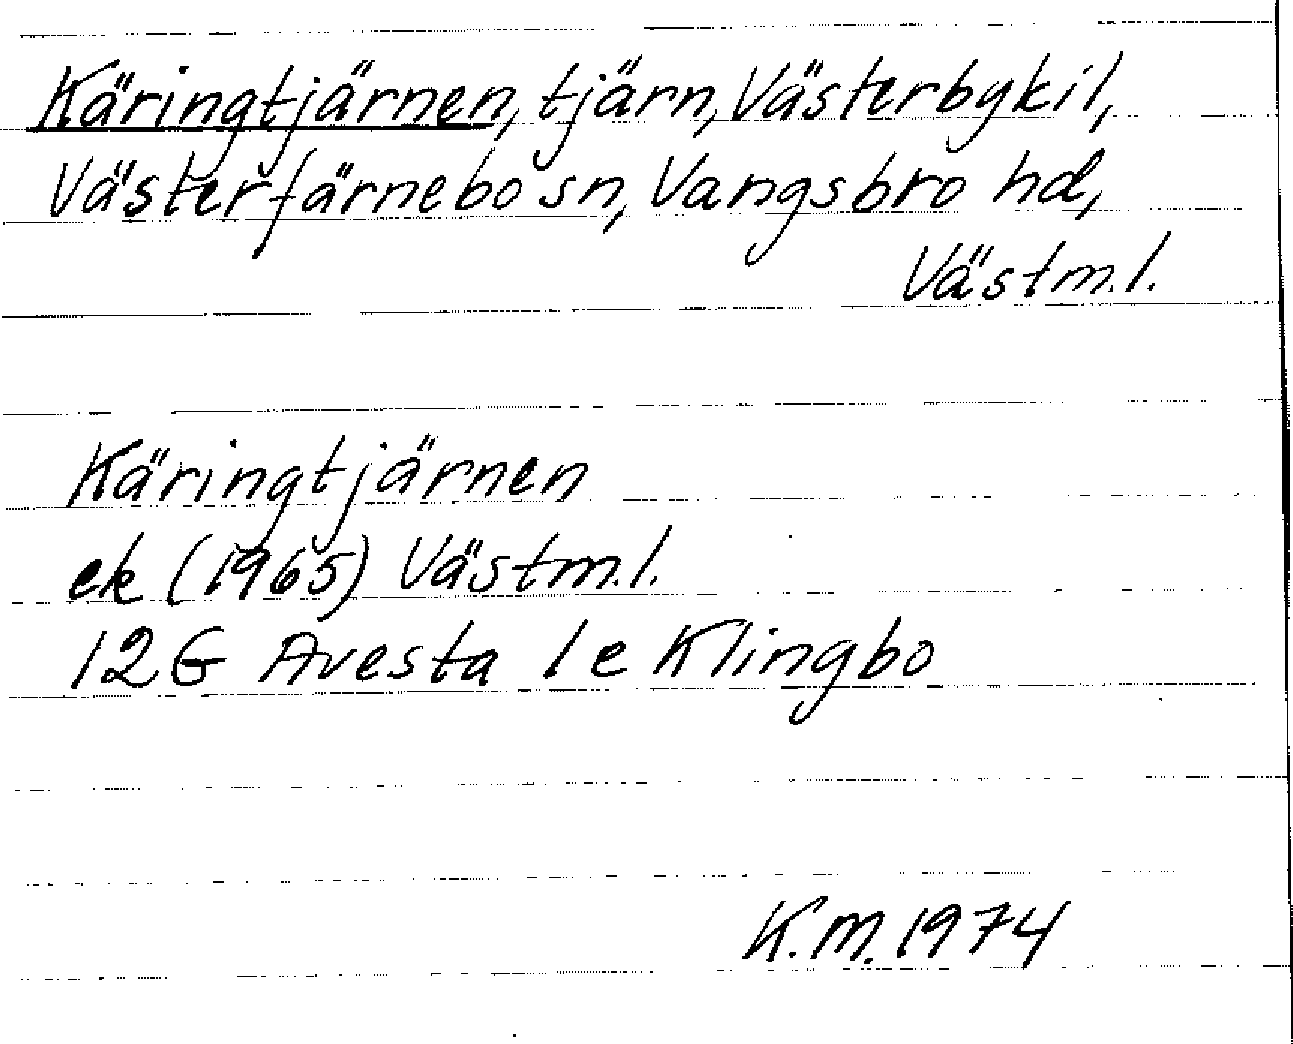 Käringtjärnen, tjärn, Västerbykil,
Västerfärnebo sn, Vangsbro hd,
Västm.l.
Käringtjärnen
ek (1965) Västm.l.
12G Avesta 1e Klingbo
K.M. 1974